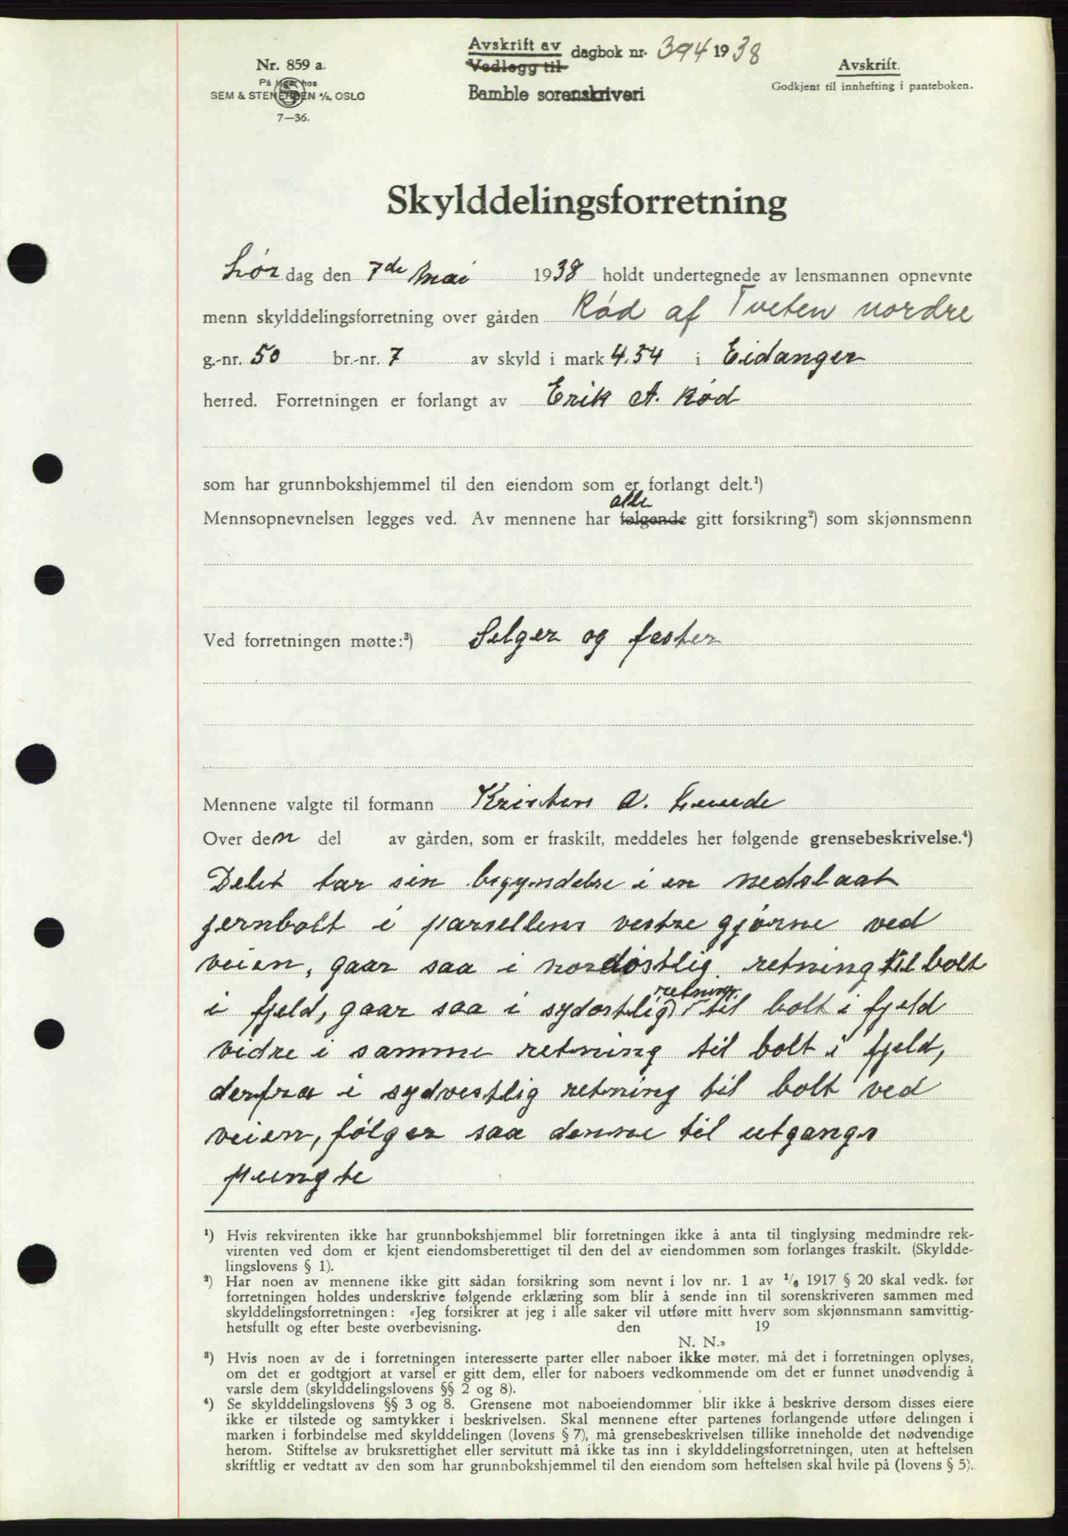 Nr. 859 a.
På lager hos
SEM & STENERSEN A/S, OSLO
7—36.
Avskrift av dagbok nr. 394 1938
Vedlegg til
Bamble sorenskriveri
Avskrift.
Godkjent til innhefting i panteboken.
Skylddelingsforretning
Lør dag den 7de Mai 1938 holdt undertegnede av lensmannen opnevnte
menn skylddelingsforretning over gården Rød af Tveten nordre
g.-nr. 50 br.-nr. 7 av skyld i mark 4.54 i Eidanger
herred. Forretningen er forlangt av Erik A. Rød
som har grunnbokshjemmel til den eiendom som er forlangt delt.¹)
alle
Mennsopnevnelsen legges ved. Av mennene har følgende gitt forsikring²) som skjønnsmenn
Ved forretningen møtte:³) Selger og fester
Mennene valgte til formann Kristen A.
Over den del av gården, som er fraskilt, meddeles her følgende grensebeskrivelse.⁴)
Delet tar sin begyndelse i en nedslaat
jernbolt i parsellens vestre gjørne ved
veien, gaar saa i nordøstlig retning til bolt
i fjeld, gaar saa i sydøstlig retning til bolt i fjeld
vidre i samme retning til bolt i fjeld,
derfra i sydvestlig retning til bolt ved
veien, følger saa denne til utgangs
pungte
¹) Hvis rekvirenten ikke har grunnbokshjemmel blir forretningen ikke å anta til tinglysing medmindre rek-
virenten ved dom er kjent eiendomsberettiget til den del av eiendommen som forlanges fraskilt. (Skyldde-
lingslovens § 1).
²) Har noen av mennene ikke gitt sådan forsikring som nevnt i lov nr. 1 av ¹/₆ 1917 § 20 skal vedk. før
forretningen holdes underskrive følgende erklæring som blir å sende inn til sorenskriveren sammen med
skylddelingsforretningen: «Jeg forsikrer at jeg i alle saker vil utføre mitt hverv som skjønnsmann samvittig-
hetsfullt og efter beste overbevisning. den 19
N. N.»
³) Hvis noen av de i forretningen interesserte parter eller naboer ikke møter, må det i forretningen oplyses,
om det er godtgjort at varsel er gitt dem, eller for naboers vedkommende om det er funnet unødvendig å
varsle dem (skylddelingslovens §§ 2 og 8).
⁴) Se skylddelingslovens §§ 3 og 8. Grensene mot naboeiendommer blir ikke å beskrive dersom disses eiere
ikke er tilstede og samtykker i beskrivelsen. Skal mennene efter partenes forlangende utføre delingen i
marken i forbindelse med skylddelingen (lovens § 7), må grensebeskrivelsen tillike inneholde det nødvendige
herom. Stiftelse av bruksrettighet eller servitutt må ikke tas inn i skylddelingsforretningen, uten at heftelsen
skriftlig er vedtatt av den som har grunnbokshjemmel til den eiendom som heftelsen skal hvile på (lovens § 5).